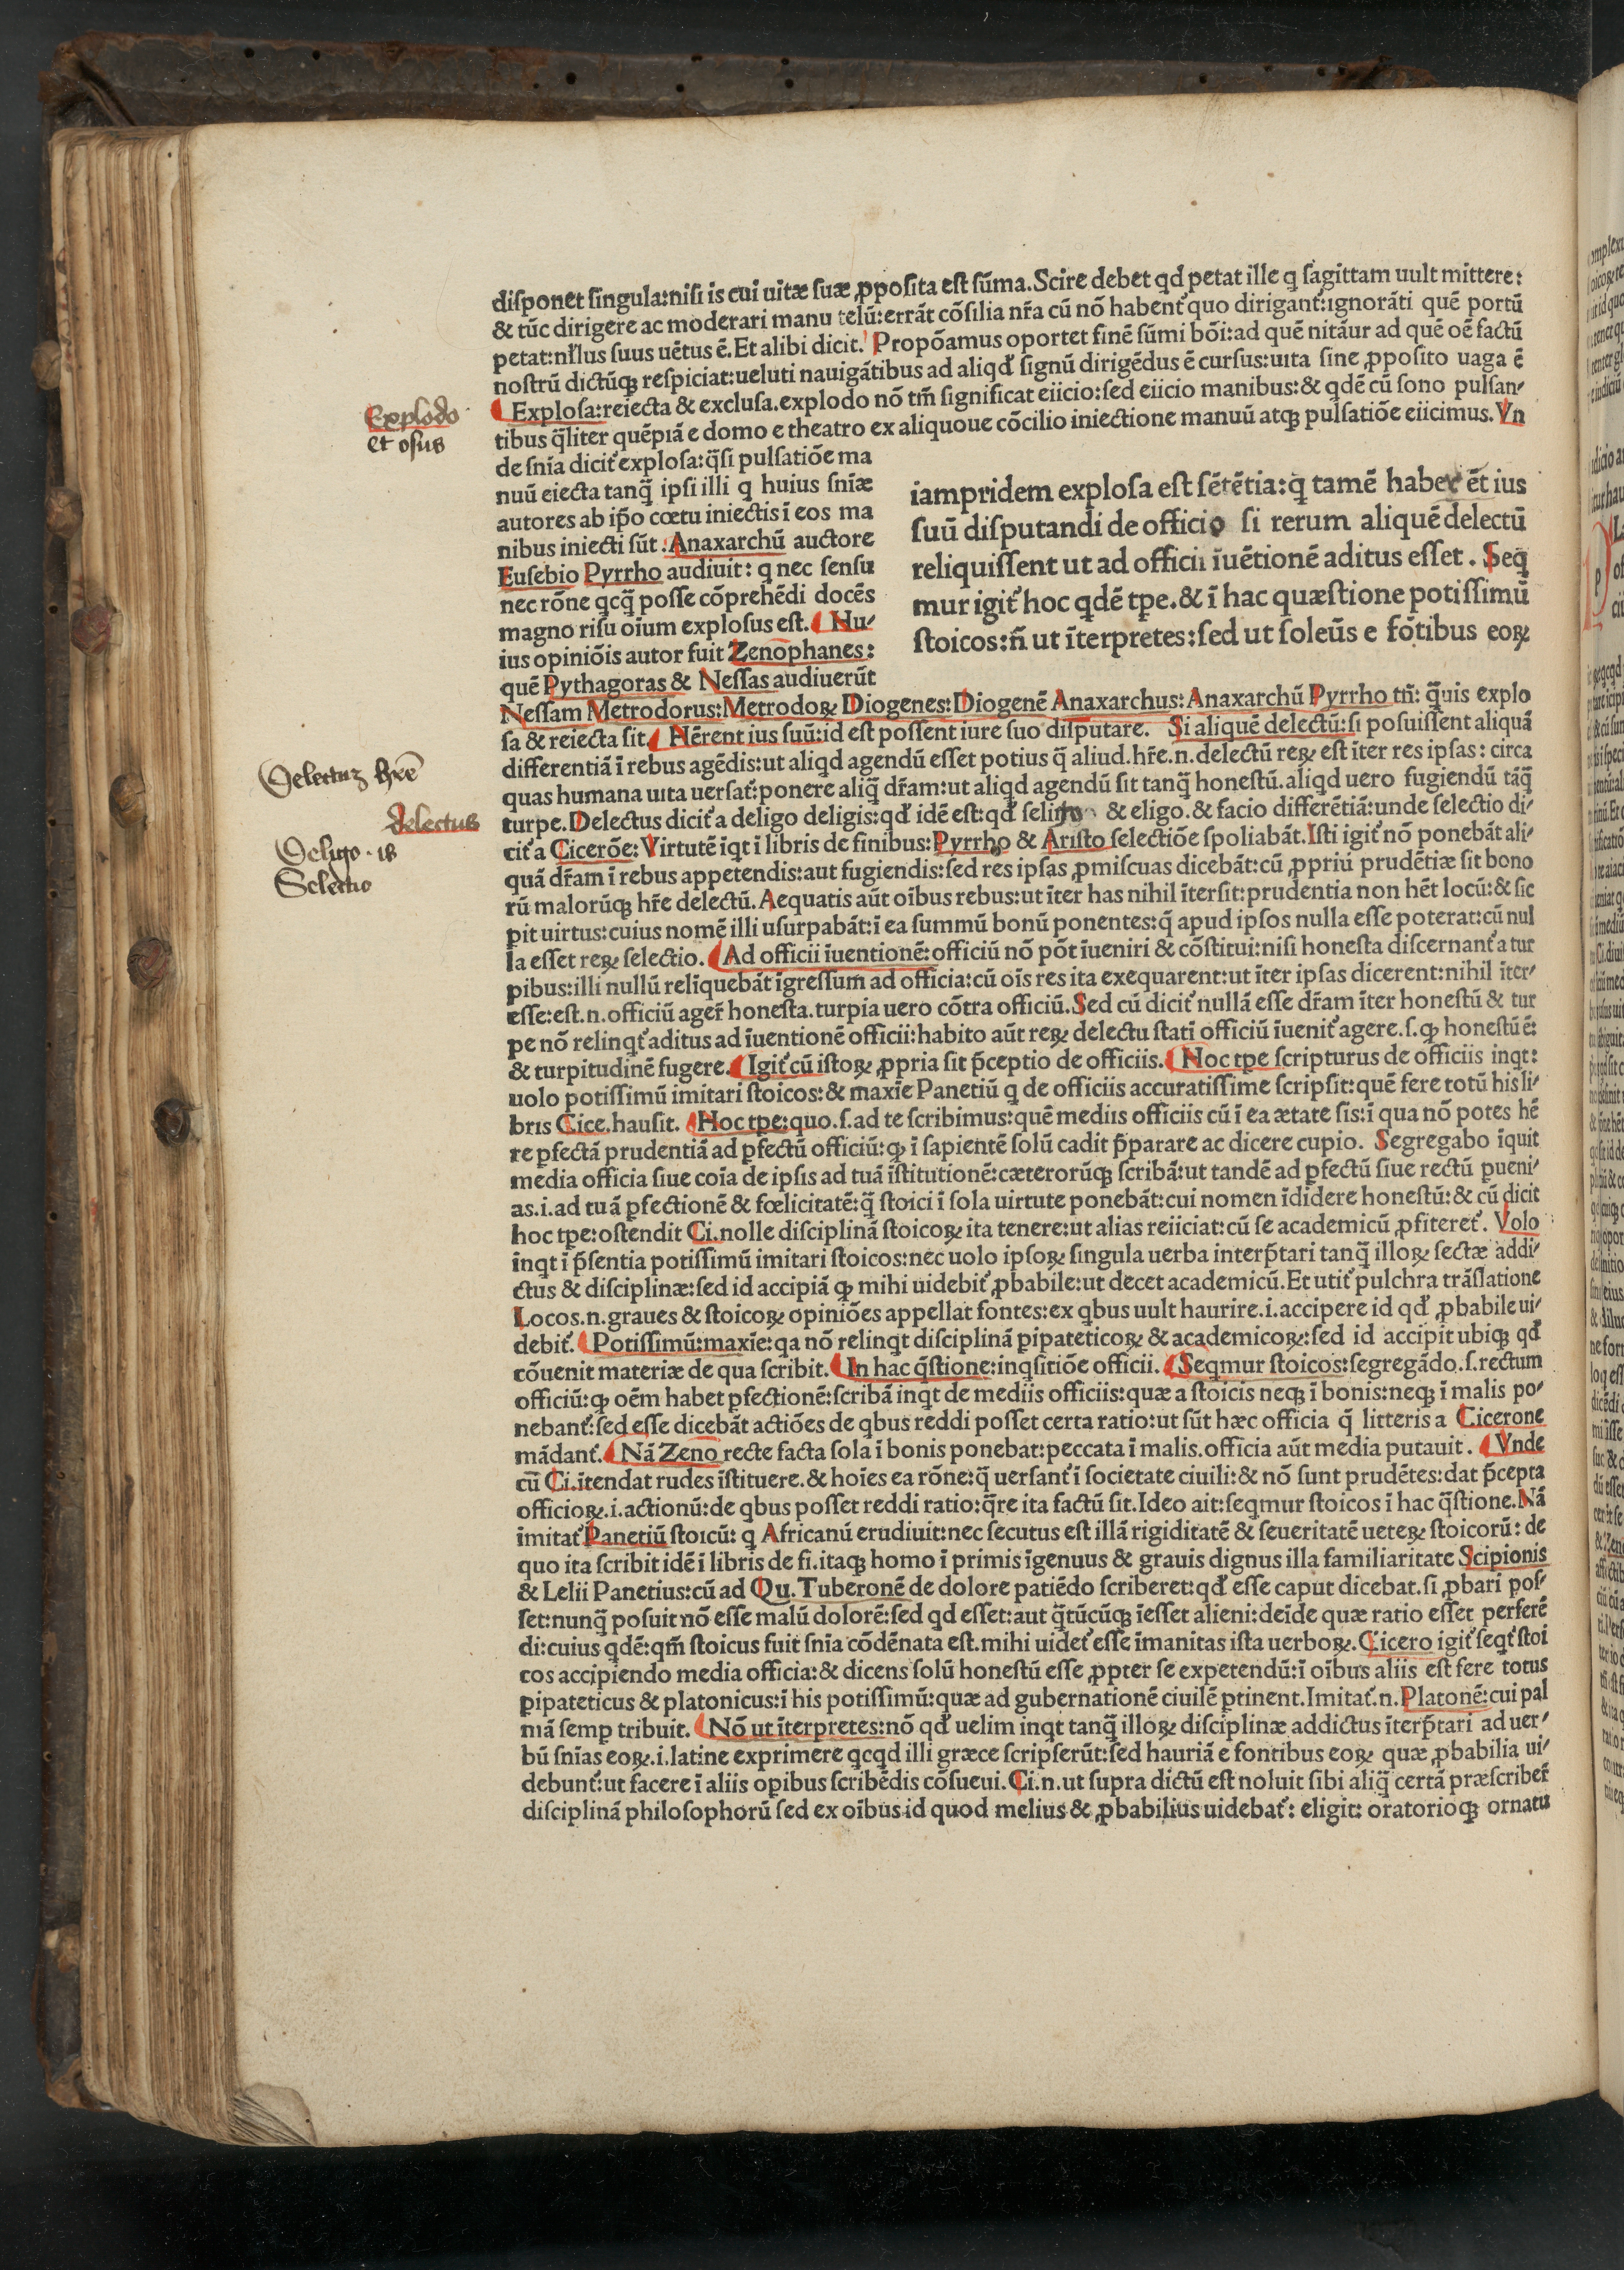 diſponet ſingula:niſi is cui uitæ ſuæ ꝓpoſita eſt ſūma.Scire debet qd petat ille q ſagittam uult mittere:
& tūc dirigere ac moderari manu telū:errāt cōſilia nr̄a cū nō habent᷑ quo dirigant᷑:ignorāti quē portū
petat:nłlus ſuus uētus ē.Et alibi dicit. Propōamus oportet finē ſūmi bōi:ad quē nitāur ad quē oē factū
noſtrū dictūqꝫ reſpiciat:ueluti nauigātibus ad aliqđ ſignū dirigēdus ē curſus:uita ſine ꝓpoſito uaga ē
Exploſa:reiecta & excluſa.explodo nō tm̄ ſignificat eiicio:ſed eiicio manibus:& qdē cū ſono pulſan⸗
Explodo
et oſus
tibus q̄liter quēpiā e domo e theatro ex aliquoue cōcilio iniectione manuū atqꝫ pulſatiōe eiicimus.Vn
de ſnīa dicit᷑ exploſa:q̄ſi pulſatiōe ma
nuū eiecta tanq̄ ipſi illi q huius ſnīæ
autores ab ip̄o cœtu iniectis ī eos ma
nibus iniecti ſūt :Anaxarchū auctore
Euſebio Pyrrho audiuit: q nec ſenſu
nec rōne qcq̄ poſſe cōprehēdi docēs
magno riſu oīum exploſus eſt. Hu⸗
ius opiniōis autor fuit Zenophanes:
quē Pythagoras & Neſſas audiuerūt
iampridem exploſa eſt ſētētia:q̄ tamē ēt ius
ſuū diſputandi de officio ſi rerum aliquē delectū
reliquiſſent ut ad officii īuētionē aditus eſſet . Seq
mur igit᷑ hoc qdē tpe.& ī hac quæſtione potiſſimū
ſtoicos:n̄ ut īterpretes:ſed ut ſoleūs e fōtibus eoꝝ
Neſſam Metrodorus:Metrodoꝝ Diogenes:Diogenē Anaxarchus:Anaxarchū Pyrrho tn̄: q̄uis explo
ſa & reiecta ſit. Hērent ius ſuū:id eſt poſſent iure ſuo diſputare. Si aliquē delectū:ſi poſuiſſent aliquā
differentiā ī rebus agēdis:ut aliqd agendū eſſet potius q̄ aliud.hr̄e.n.delectū reꝝ eſt īter res ipſas: circa
Delectuꝫ hr̄e
quas humana uita uerſat᷑:ponere aliq̄ dr̄am:ut aliqd agendū ſit tanq̄ honeſtū.aliqd uero fugiendū tāq̄
delectus
turpe.Delectus dicit᷑ a deligo deligis:qđ idē eſt:qđ & eligo.& facio differētiā:unde ſelectio di⸗
Deligo . is
Selectio
cit᷑ a Cicerōe: Virtutē iqt ī libris de finibus:Pyrrho & Ariſto ſelectiōe ſpoliabāt.Iſti igit᷑ nō ponebāt ali⸗
quā dr̄am ī rebus appetendis:aut fugiendis:ſed res ipſas ꝓmiſcuas dicebāt:cū ꝓpriū prudētiæ ſit bono
rū malorūqꝫ hr̄e delectū.Aequatis aūt oībus rebus:ut īter has nihil īterſit:prudentia non hēt locū:& ſic
ꝑit uirtus:cuius nomē illi uſurpabāt:ī ea ſummū bonū ponentes:q̄ apud ipſos nulla eſſe poterat:cū nul
la eſſet reꝝ ſelectio. Ad officii īuentionē:officiū nō pōt īueniri & cōſtitui:niſi honeſta diſcernant᷑ a tur
pibus:illi nullū reliquebāt īgreſſum ad officia:cū oīs res ita exequarent:ut īter ipſas dicerent:nihil īter⸗
eſſe:eſt.n.officiū ager̄ honeſta.turpia uero cōtra officiū.Sed cū dicit᷑ nullā eſſe dr̄am īter honeſtū & tur
pe nō relinqt᷑ aditus ad īuentionē officii:habito aūt reꝝ delectu ſtatī officiū īuenit᷑ agere.ſ.ꝙ honeſtū ē:
& turpitudinē fugere. Igit᷑ cū iſtoꝝ ꝓpria ſit p̄ceptio de officiis. Hoc tpe ſcripturus de officiis inqt:
uolo potiſſimū imitari ſtoicos:& maxīe Panetiū q de officiis accuratiſſime ſcripſit:quē fere totū his li⸗
bris Cice.hauſit. Hoc tpe:quo.ſ.ad te ſcribimus:quē mediis officiis cū ī ea ætate ſis:ī qua nō potes hē
re ꝑfectā prudentiā ad ꝑfectū officiū:ꝙ ī ſapientē ſolū cadit p̄parare ac dicere cupio. Segregabo īquit
media officia ſiue coīa de ipſis ad tuā īſtitutionē:cæterorūqꝫ ſcribā:ut tandē ad ꝑfectū ſiue rectū ꝑueni⸗
as.i.ad tuā ꝑfectionē & fœlicitatē:q̄ ſtoici ī ſola uirtute ponebāt:cui nomen īdidere honeſtū:& cū dicit
hoc tpe:oſtendit Ci.nolle diſciplinā ſtoicoꝝ ita tenere:ut alias reiiciat:cū ſe academicū ꝓfiteret᷑. Volo
īnqt ī p̄ſentia potiſſimū imitari ſtoicos:nec uolo ipſoꝝ ſingula uerba interp̄tari tanq̄ illoꝝ ſectæ addi⸗
ctus & diſciplinæ:ſed id accipiā ꝙ mihi uidebit᷑ ꝓbabile:ut decet academicū.Et utit᷑ pulchra trāſlatione
Locos.n.graues & ſtoicoꝝ opiniōes appellat fontes:ex qbus uult haurire.i.accipere id qđ ꝓbabile ui⸗
debit᷑. Potiſſimū:maxīe:qa nō relinqt diſciplinā ꝑipateticoꝝ & academicoꝝ:ſed id accipit ubiqꝫ qđ
cōuenit materiæ de qua ſcribit. In hac q̄ſtione:inqſitiōe officii. Seqmur ſtoicos:ſegregādo.ſ.rectum
officiū:ꝙ oēm habet ꝑfectionē:ſcribā inqt de mediis officiis:quæ a ſtoicis neqꝫ ī bonis:neqꝫ ī malis po⸗
nebant᷑:ſed eſſe dicebāt actiōes de qbus reddi poſſet certa ratio:ut ſūt hæc officia q̄ litteris a Cicerone
mādant᷑. Nā Zeno recte facta ſola ī bonis ponebat:peccata ī malis.officia aūt media putauit . Vnde
cū Ci.ītendat rudes īſtituere.& hoīes ea rōne:q̄ uerſant᷑ ī ſocietate ciuili:& nō ſunt prudētes:dat p̄cepta
officioꝝ.i.actionū:de qbus poſſet reddi ratio:q̄re ita factū ſit.Ideo ait:ſeqmur ſtoicos ī hac q̄ſtione.Nā
imitat᷑ Panetiū ſtoicū: q Africanū erudiuit:nec ſecutus eſt illā rigiditatē & ſeueritatē ueteꝝ ſtoicorū: de
quo ita ſcribit idē ī libris de fi.itaqꝫ homo ī primis īgenuus & grauis dignus illa familiaritate Scipionis
& Lelii Panetius:cū ad Qu.Tuberonē de dolore patiēdo ſcriberet:qđ eſſe caput dicebat.ſi ꝓbari poſ⸗
ſet:nunq̄ poſuit nō eſſe malū dolorē:ſed qd eſſet:aut q̄tūcūqꝫ īeſſet alieni:deīde quæ ratio eſſet perferē
di:cuius qdē:qm̄ ſtoicus fuit ſnīa cōdēnata eſt.mihi uidet᷑ eſſe īmanitas iſta uerboꝝ.Cicero igit᷑ ſeqt᷑ ſtoi
cos accipiendo media officia:& dicens ſolū honeſtū eſſe ꝓpter ſe expetendū:ī oībus aliis eſt fere totus
ꝑipateticus & platonicus:ī his potiſſimū:quæ ad gubernationē ciuilē ꝑtinent.Imitat᷑.n.Platonē:cui pal
mā ſemꝑ tribuit. Nō ut īterpretes:nō qđ uelim inqt tanq̄ illoꝝ diſciplinæ addictus īterp̄tari ad uer⸗
bū ſnīas eoꝝ.i.latine exprimere qcqd illi græce ſcripſerūt:ſed hauriā e fontibus eoꝝ quæ ꝓbabilia ui⸗
debunt᷑:ut facere ī aliis oꝑibus ſcribēdis cōſueui.Ci.n.ut ſupra dictū eſt noluit ſibi aliq̄ certā præſcriber̄
diſciplinā philoſophorū ſed ex oībus id quod melius & ꝓbabilius uidebat᷑: eligit: oratorioqꝫ ornatu